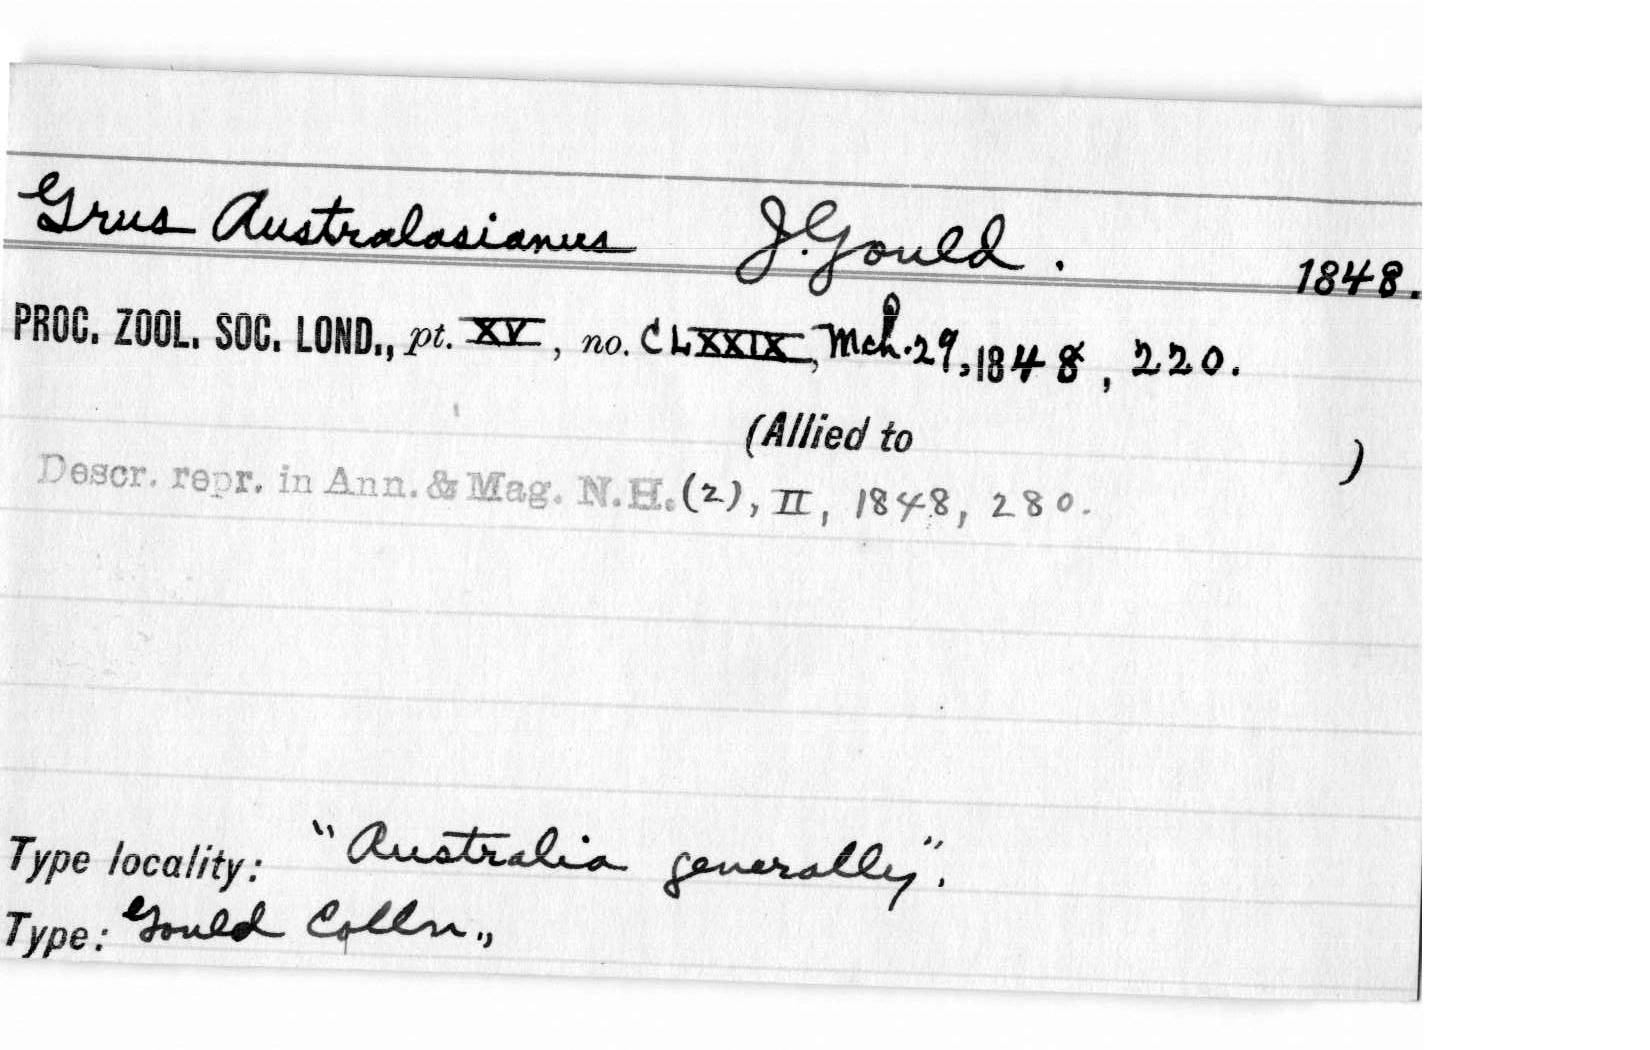 Grus Australasianus J. Gould. 1848.
PROC. ZOOL. SOC. LOND., pt. XV, no. CLXXIX, Mch. 29, 1848, 220.
(Allied to )
Descr. repr. in Ann. & Mag. N.H. (2), II, 1848, 280.
Type locality: "Australia generally".
Type: Gould Colln.,